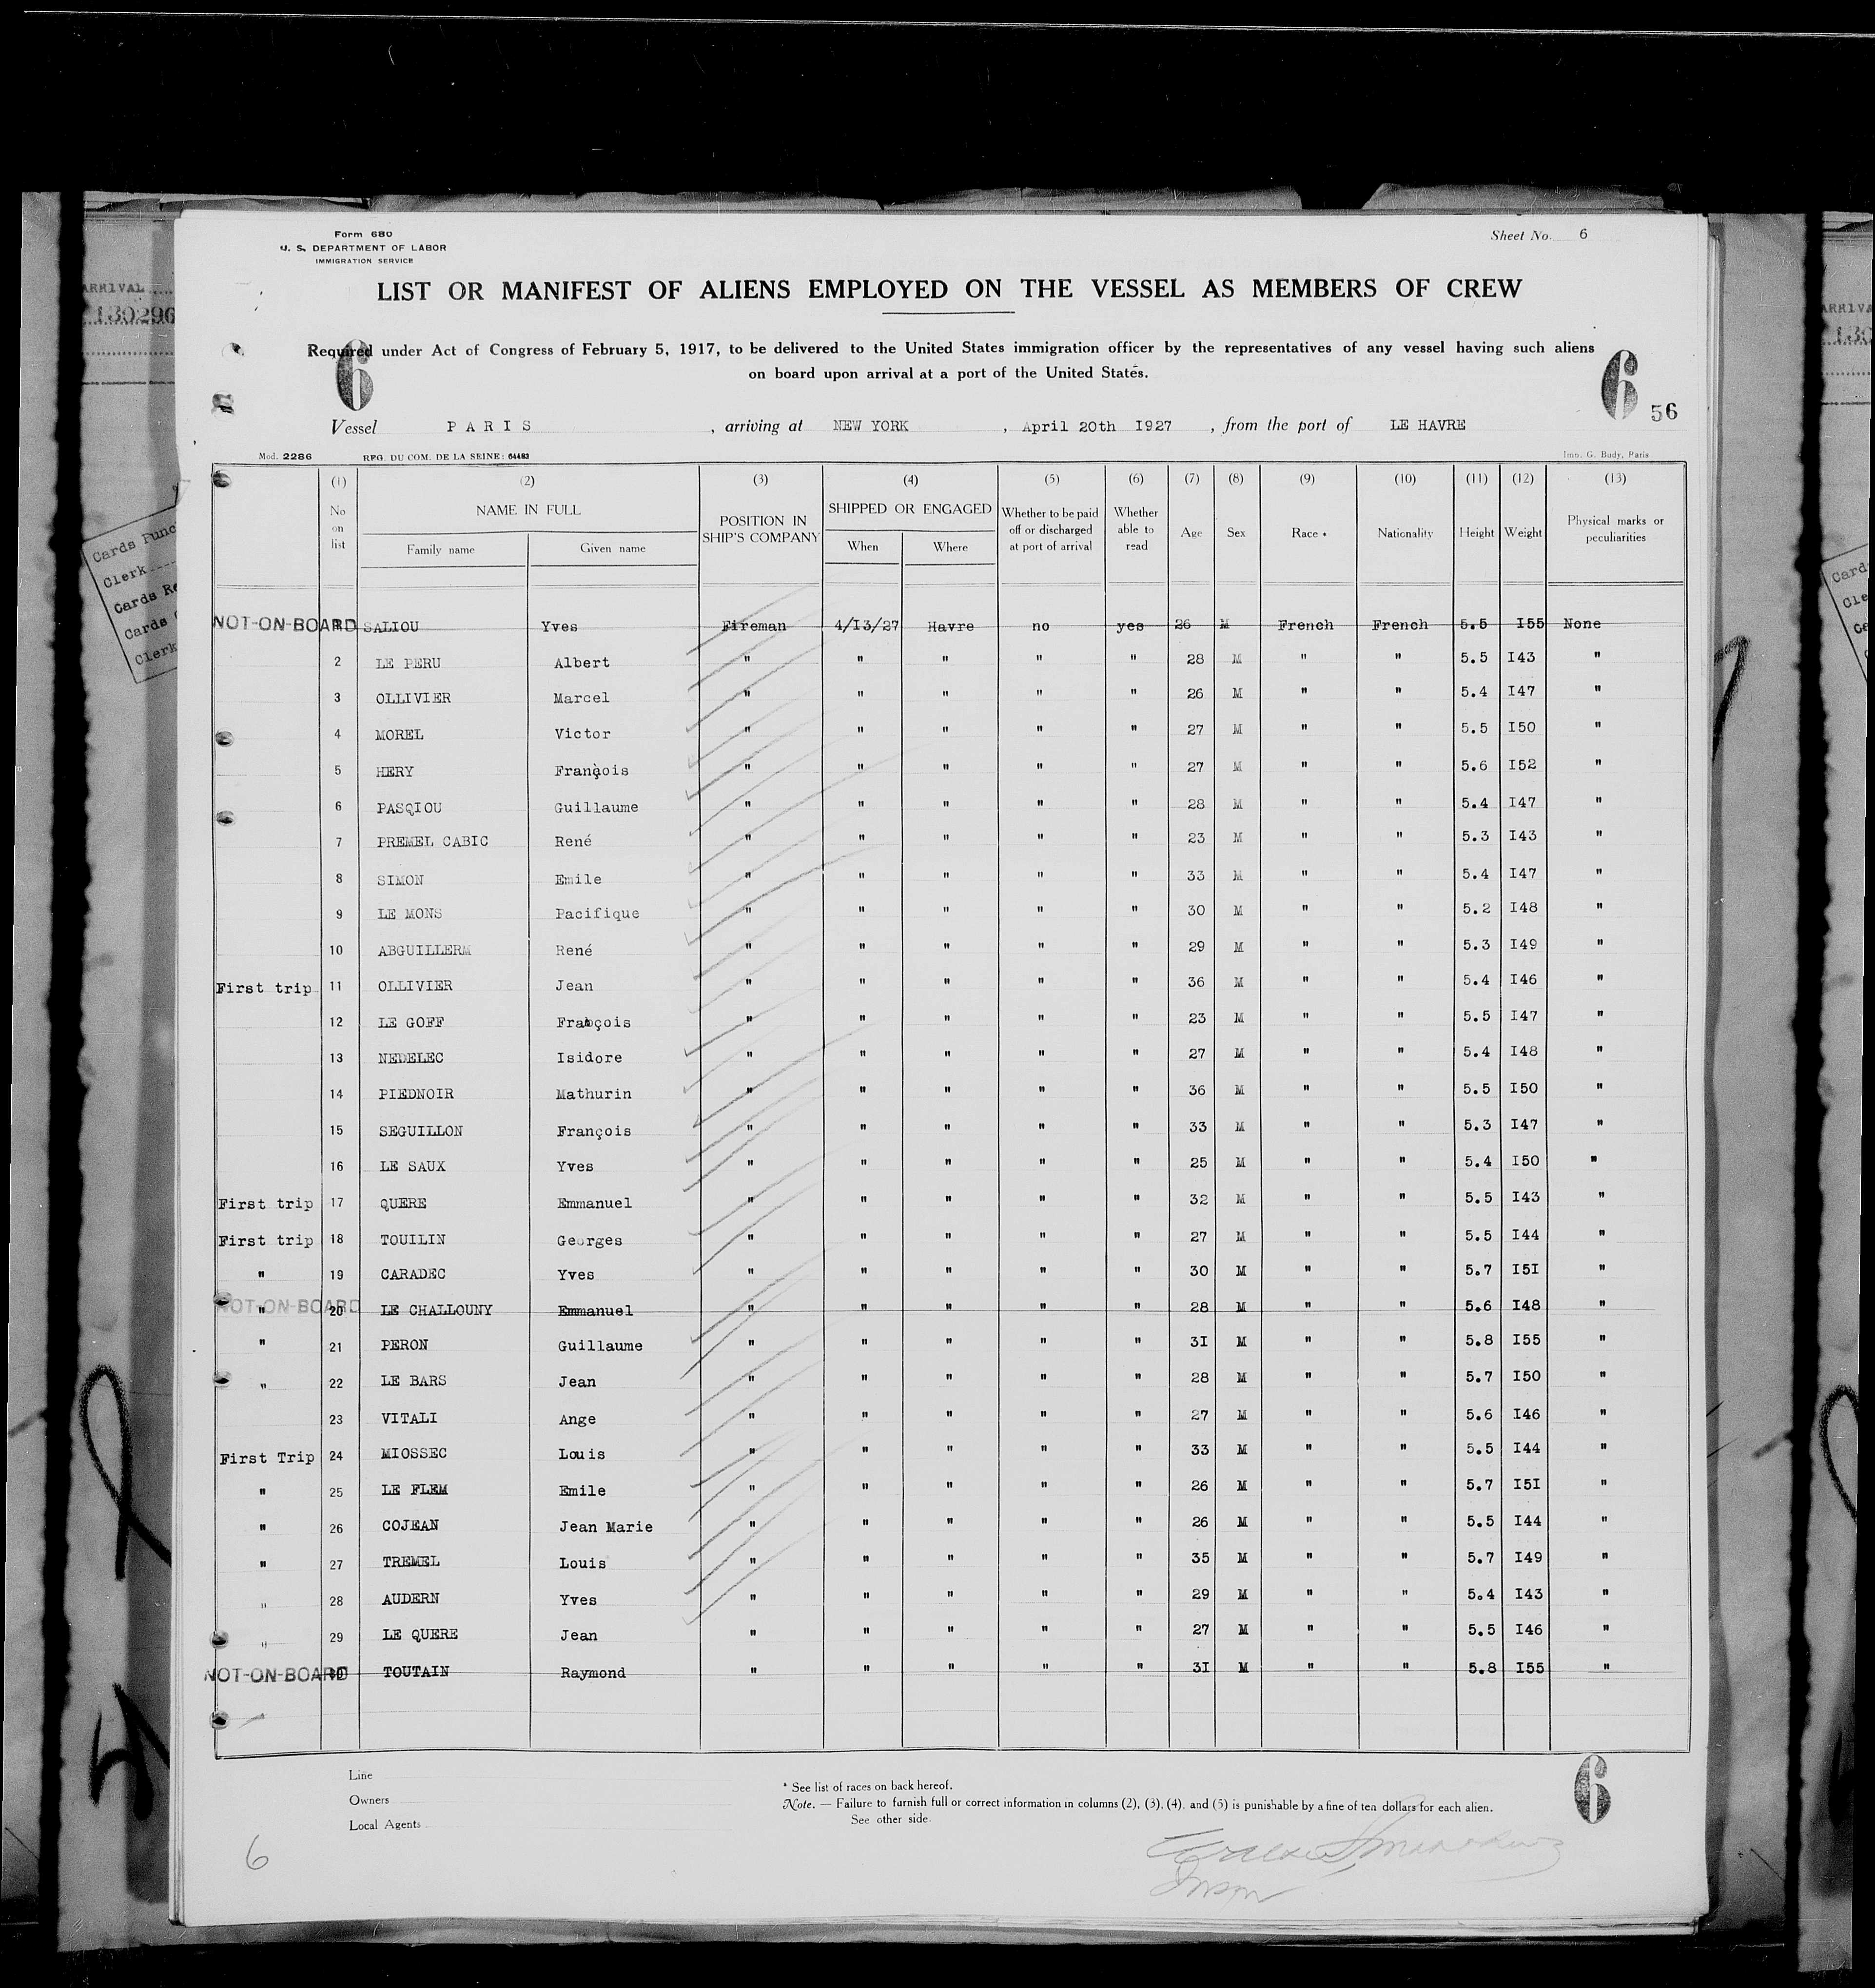 Form 680
U. S. DEPARTMENT OF LABOR
IMMIGRATION SERVICE
Sheet No. 6
LIST OR MANIFEST OF ALIENS EMPLOYED ON THE VESSEL AS MEMBERS OF CREW
Required under Act of Congress of February 5, 1917, to be delivered to the United States immigration officer by the representatives of any vessel having such aliens
on board upon arrival at a port of the United States.
6
6
56
Vessel PARIS, arriving at NEW YORK, April 20th I927, from the port of LE HAVRE
Mod. 2286 REG. DU COM. DE LA SEINE: 64483 Imp. G. Budy, Paris
(1) (2) (3) (4) (5) (6) (7) (8) (9) (10) (11) (12) (13)
No on list NAME IN FULL Family name Given name POSITION IN SHIP'S COMPANY SHIPPED OR ENGAGED When Where Whether to be paid off or discharged at port of arrival Whether able to read Age Sex Race * Nationality Height Weight Physical marks or peculiarities
NOT-ON-BOARD SALIOU Yves Fireman 4/I3/27 Havre no yes 26 M French French 5.5 I55 None
2 LE PERU Albert " " " " " 28 M " " 5.5 I43 "
3 OLLIVIER Marcel " " " " " 26 M " " 5.4 I47 "
4 MOREL Victor " " " " " 27 M " " 5.5 I50 "
5 HERY François " " " " " 27 M " " 5.6 I52 "
6 PASQIOU Guillaume " " " " " 28 M " " 5.4 I47 "
7 PREMEL CABIC René " " " " " 23 M " " 5.3 I43 "
8 SIMON Emile " " " " " 33 M " " 5.4 I47 "
9 LE MONS Pacifique " " " " " 30 M " " 5.2 I48 "
10 ABGUILLERM René " " " " " 29 M " " 5.3 I49 "
First trip 11 OLLIVIER Jean " " " " " 36 M " " 5.4 I46 "
12 LE GOFF François " " " " " 23 M " " 5.5 I47 "
13 NEDELEC Isidore " " " " " 27 M " " 5.4 I48 "
14 PIEDNOIR Mathurin " " " " " 36 M " " 5.5 I50 "
15 SEGUILLON François " " " " " 33 M " " 5.3 I47 "
16 LE SAUX Yves " " " " " 25 M " " 5.4 I50 "
First trip 17 QUERE Emmanuel " " " " " 32 M " " 5.5 I43 "
First trip 18 TOUILIN Georges " " " " " 27 M " " 5.5 I44 "
" 19 CARADEC Yves " " " " " 30 M " " 5.7 I5I "
NOT-ON-BOARD " 20 LE CHALLOUNY Emmanuel " " " " " 28 M " " 5.6 I48 "
" 21 PERON Guillaume " " " " " 3I M " " 5.8 I55 "
" 22 LE BARS Jean " " " " " 28 M " " 5.7 I50 "
23 VITALI Ange " " " " " 27 M " " 5.6 I46 "
First Trip 24 MIOSSEC Louis " " " " " 33 M " " 5.5 I44 "
" 25 LE FLEM Emile " " " " " 26 M " " 5.7 I5I "
" 26 COJEAN Jean Marie " " " " " 26 M " " 5.5 I44 "
" 27 TREMEL Louis " " " " " 35 M " " 5.7 I49 "
" 28 AUDERN Yves " " " " " 29 M " " 5.4 I43 "
" 29 LE QUERE Jean " " " " " 27 M " " 5.5 I46 "
NOT-ON-BOARD TOUTAIN Raymond " " " " " 3I M " " 5.8 I55 "
Line
Owners
Local Agents
* See list of races on back hereof.
Note. — Failure to furnish full or correct information in columns (2), (3), (4), and (5) is punishable by a fine of ten dollars for each alien.
See other side.
6
6
ARRIVAL
130296
Cards Punc
Clerk
Cards Re
Cards
Clerk